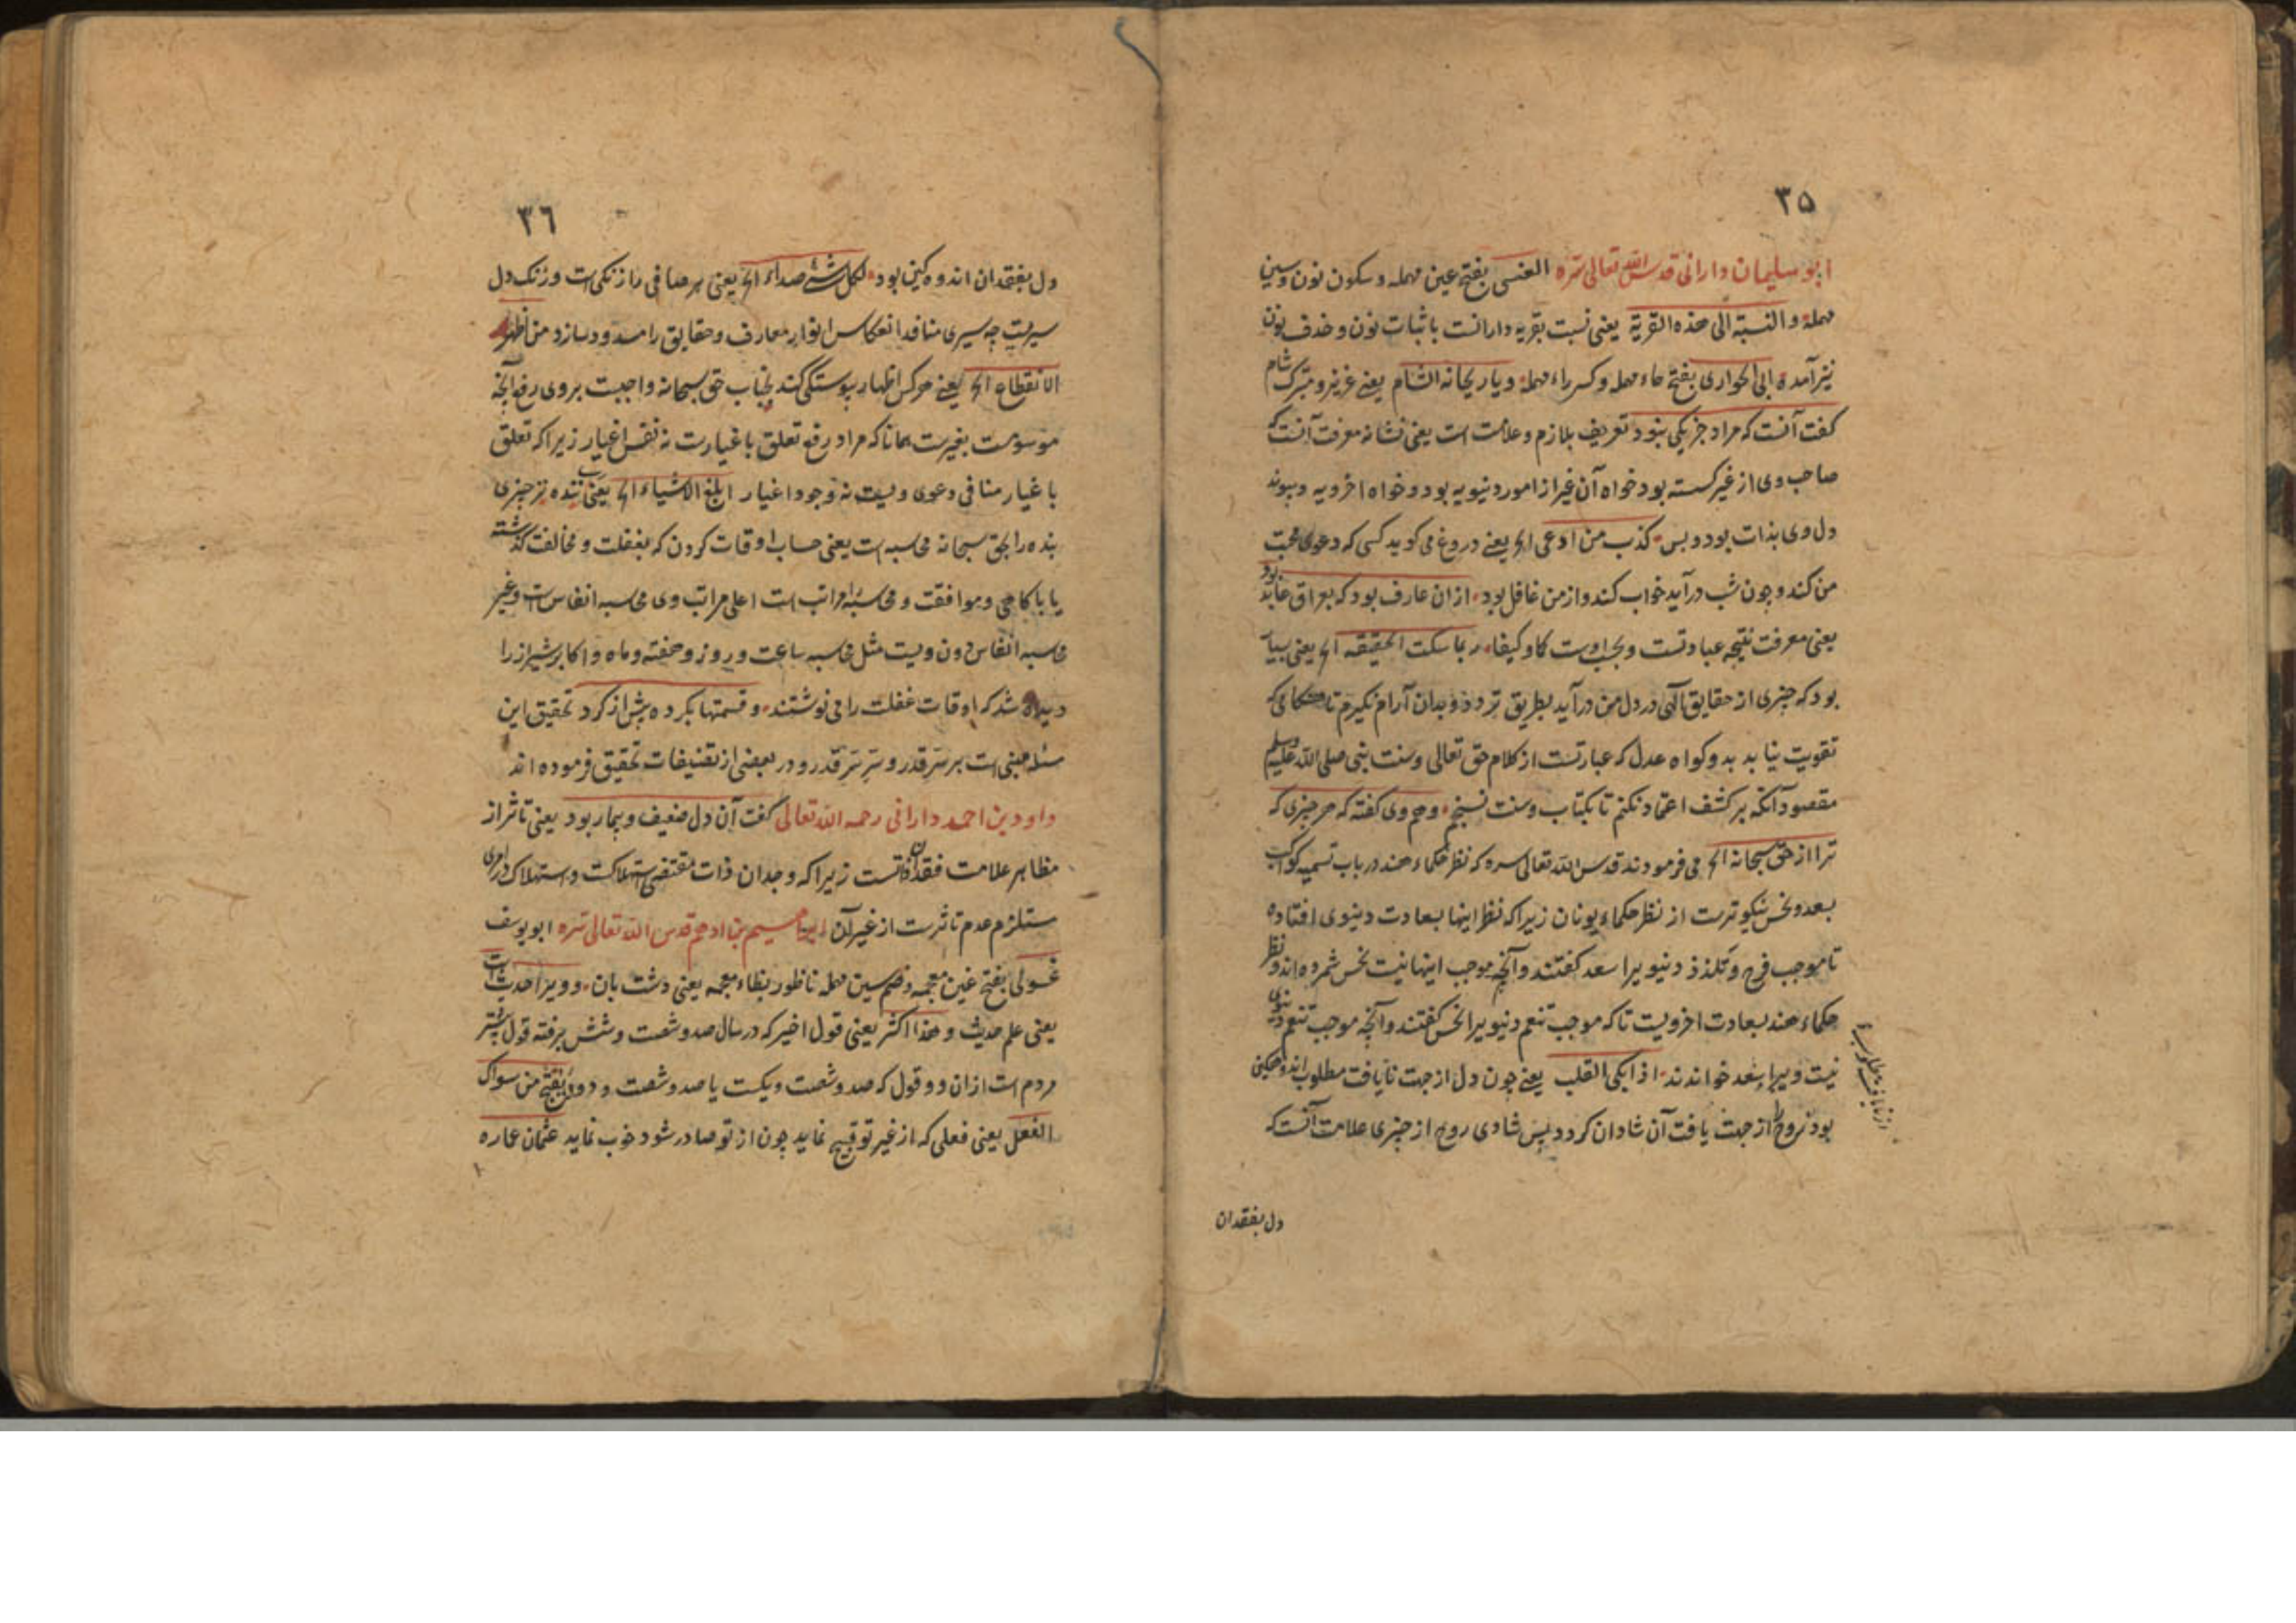 ۳۵
ابو سلیمان دارانی قدس الله تعالی سره العنسی بفتح عین مهمله و سکون نون و سین
مهمله و النسبة الی هذه القریة یعنی نسبت بقریه دارانست باثبات نون و حذف نون
نیز آمده ابی الحواری بفتح حاء مهمله و کسر راء مهمله و یا ریحانه الشام یعنی عزیز و متبرک شام
گفت آنست که مراد جز یکی نبود تعریف بلازم و علامت است یعنی نشانه معرفت آنست که
صاحب وی از غیر کسسته بود خواه آن غیر از امور دنیویه بود و خواه اخرویه و پیوند
دل وی بذات بود و بس کذب من ادعی الخ یعنی دروغ می گوید کسی که دعوی محبت
من کند و چون شب درآید خواب کند و از من غافل بود از ان عارف بود که بعراق عابد بود
یعنی معرفت نتیجه عبادتست و بحسب اوست کما و کیفا ربما سکت الحقیقه الخ یعنی بسیار
بود که چیزی از حقایق الهی در دل من درآید بطریق تردد و بدان آرام نگیرم تا هنگامی که
تقویت نیابد بدو گواه عدل که عبارتست از کلام حق تعالی و سنت نبی صلی الله علیه وسلم
مقصود آنکه بر کشف اعتماد نکنم تا بکتاب و سنت نسنجم و هم وی گفته که هر چیزی که
ترا از حق سبحانه الخ می فرمودند قدس الله تعالی سره که نظر حکماء هند در باب تسمیه کواکب
بسعد و نحس نیکوترست از نظر حکماء یونان زیرا که نظر اینها بسعادت دنیوی افتاده
تا موجب فرح و تلذذ دنیویرا سعد گفتند و آنچه موجب اینها نیست نحس شمرده اند و نظر
حکماء هند بسعادت اخرویست تا که موجب تنعم دنیویرا نحس گفتند و آنچه موجب تنعم دنیوی
نیست ویرا سعد خواندند اذا بکی القلب یعنی چون دل از جهت نایافت مطلوب اندوهگین
بود روح را از جهت یافت آن شادان گردد پس شادی روح از چیزی علامت آنست که
دل بفقدان
۳۶
دل بفقدان اندوهگین بود لکل شئ صداء الخ یعنی هر صافی را زنگی است و زنگ دل
سیریست چه سیری منافذ انعکاس انوار معارف و حقایق را مسدود سازد من اظهر
الانقطاع الخ یعنی هرکس اظهار پیوستگی کند بجناب حق سبحانه واجبست بروی رفع آنچه
موسومست بغیریت همانا که مراد رفع تعلق باغیارست نه نفس اغیار زیرا که تعلق
باغیار منافی دعوی ویست نه وجود اغیار ابلغ الاشیاء الخ یعنی چیزی
بنده را بحق سبحانه محاسبه است یعنی حساب اوقات کردن که بغفلت و مخالفت گذشته
یا باکاهی و موافقت و محاسبه را مراتب است اعلی مراتب وی محاسبه انفاس است و غیر
محاسبه انفاس دون ویست مثل محاسبه ساعت و روز و هفته و ماه و اکابر شیراز را
دیده شد که اوقات غفلت را می نوشتند و قسمتها بکرده پیش از کرد تحقیق این
مسئله مبنی است بر سر قدر و سر سر قدر و در بعضی از تصنیفات تحقیق فرموده اند
داود بن احمد دارانی رحمه الله تعالی گفت آن دل ضعیف و بیمار بود یعنی تاثر از
مظاهر علامت فقدان ذاتست زیرا که وجدان ذات مقتضی استهلاکست و استهلاک در امری
مستلزم عدم تاثرست از غیر آن ابراهیم بن ادهم قدس الله تعالی سره ابو یوسف
غسولی بفتح غین معجمه و ضم سین مهمله ناظور بظاء معجمه یعنی دشت بان و ویرا حدیث است
یعنی علم حدیث و هذا اکثر یعنی قول اخیر که در سال صد و شصت و شش برفته قول بیشتر
مردم است از ان دو قول که صد و شصت و یکست یا صد و شصت و دو یقبح من سواک
الفعل یعنی فعلی که از غیر تو قبیح نماید چون از تو صادر شود خوب نماید عثمان عماره